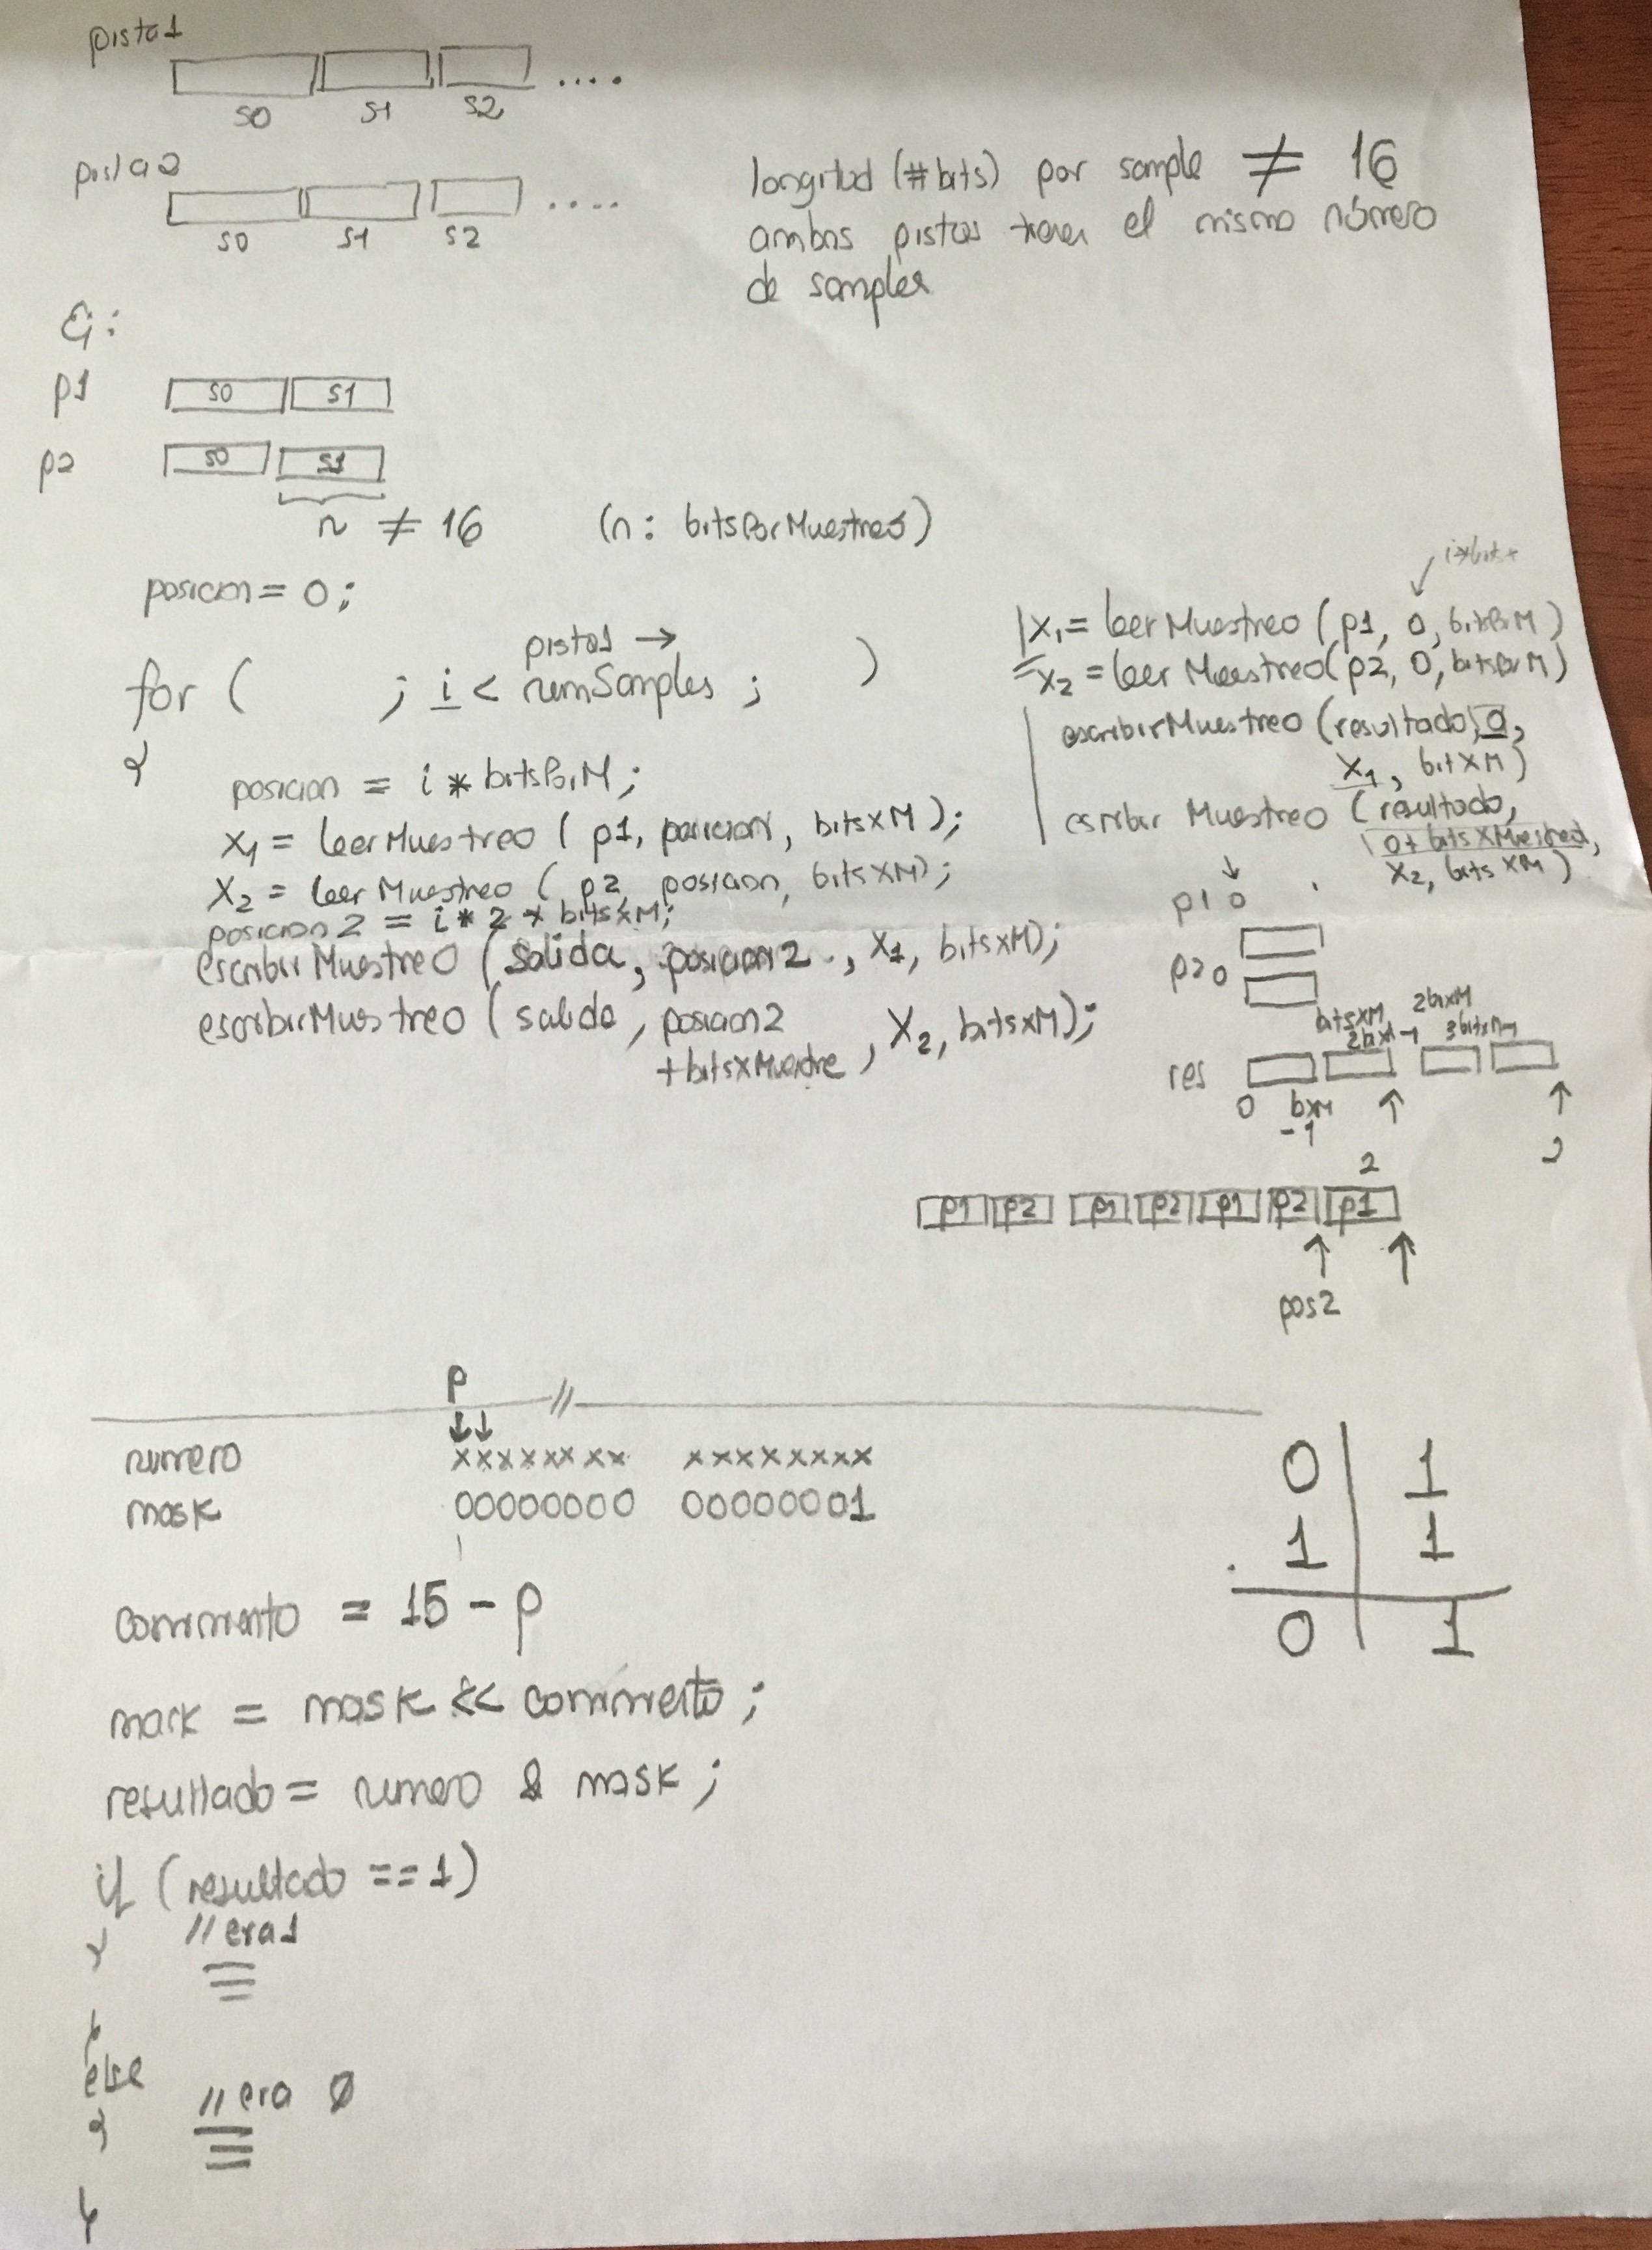 pista1
S0 S1 S2 ....
pista2
S0 S1 S2 ....
longitud (#bits) por sample ≠ 16
ambas pistas tienen el mismo número
de samples
Ej:
p1 S0 S1
p2 S0 S1
n ≠ 16 (n: bitsPorMuestreo)
posicion = 0;
pista1 →
for ( ; i < numSamples ; )
{
posicion = i * bitsPorM;
x1 = leerMuestreo ( p1, posicion, bitsxM );
x2 = leerMuestreo ( p2, posicion, bitsxM);
posicion2 = i * 2 * bitsxM;
escribirMuestreo (salida, posicion2, x1, bitsxM);
escribirMuestreo (salida, posicion2
+bitsxMuestre, x2, bitsxM);
x1 = leerMuestreo (p1, 0, bitsPorM)
x2 = leerMuestreo(p2, 0, bitsPorM)
escribirMuestreo (resultado, 0,
x1, bitxM)
escribir Muestreo (resultado,
0+ bitsxMuestreo,
x2, bitsxM)
p1 0
p2 0
bitsxM 2bixM
2bixM-1
res
0 bxM
-1
2
p1 p2 p1 p2 p1 p2 p1
pos2
p
numero xxxxxxxx xxxxxxxx
mask 00000000 00000001
corrimiento = 15 - p
mask = mask << corrimiento;
resultado = numero & mask;
if (resultado == 1)
{ // era 1
}
else
{ // era Ø
}
0 | 1
. 1 | 1
0 | 1